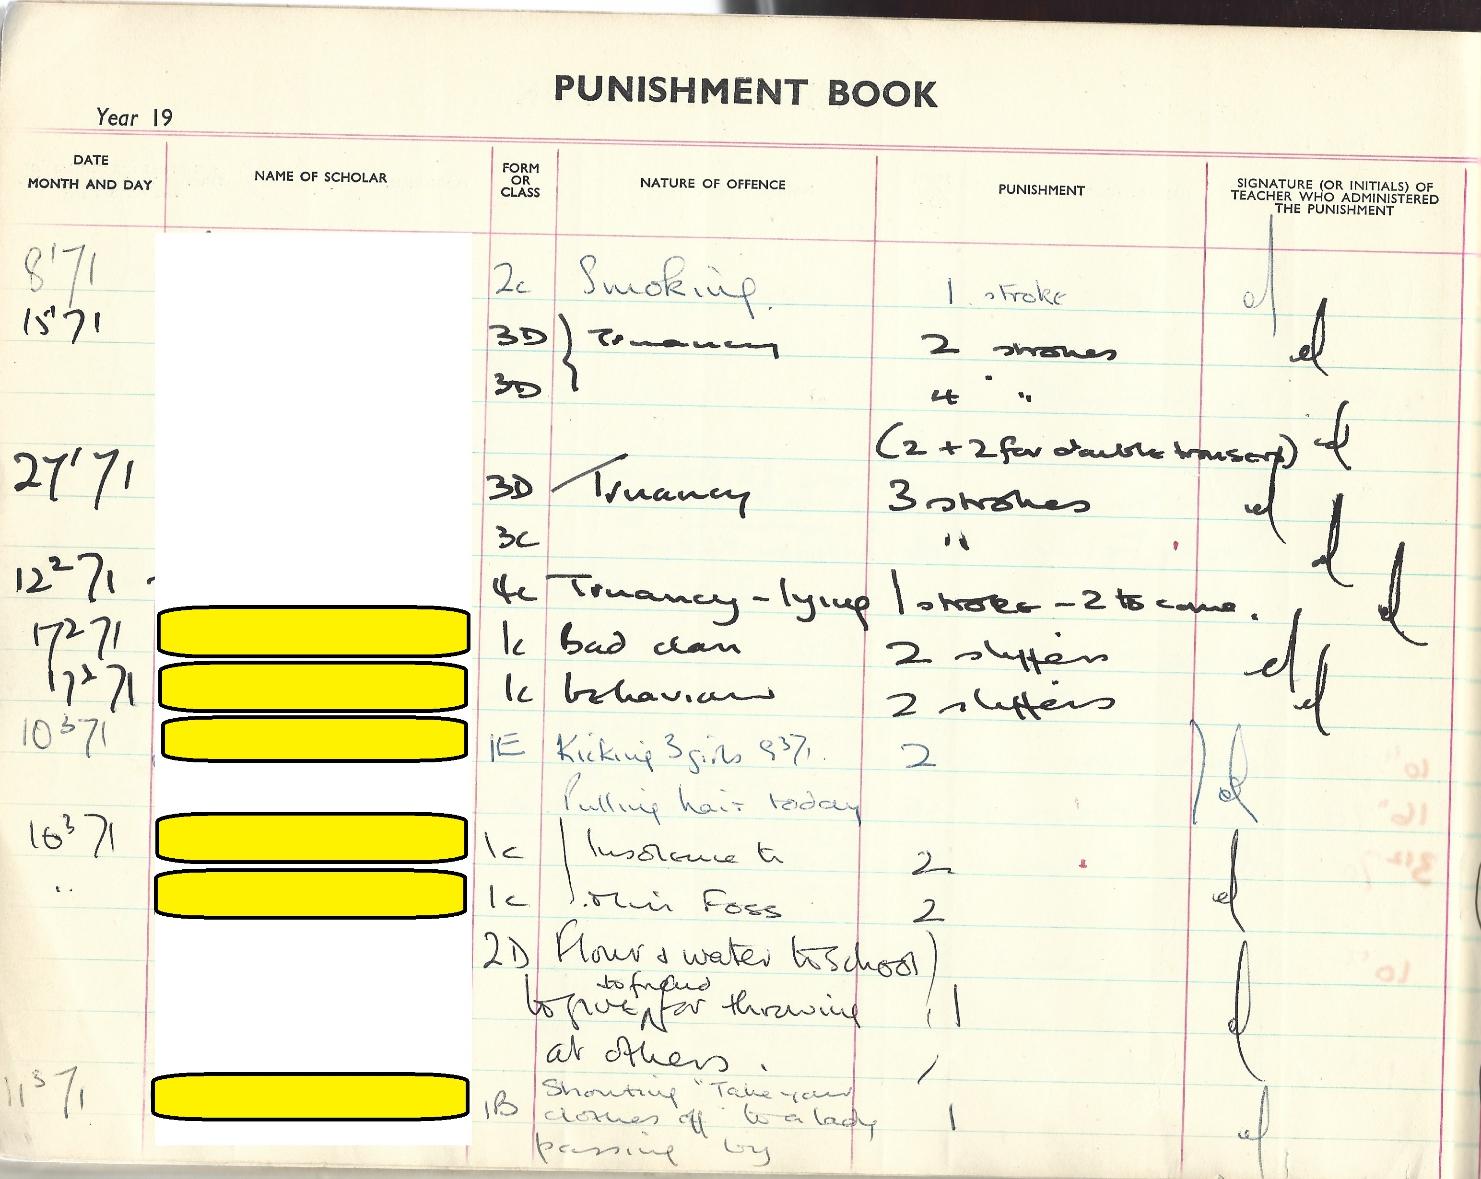 PUNISHMENT BOOK
Year 19
DATE
MONTH AND DAY
NAME OF SCHOLAR
FORM
OR
CLASS
NATURE OF OFFENCE
PUNISHMENT
SIGNATURE (OR INITIALS) OF
TEACHER WHO ADMINISTERED
THE PUNISHMENT
8 1 71 2c Smoking. 1 stroke
15 1 71 3D } Truancy 2 strokes
3D 4 "
(2 + 2 for double)
27 1 71 3D Truancy 3 strokes
3c "
12 2 71 4c Truancy - lying 1 stroke - 2 to come.
17 2 71 1c Bad class 2 slippers
17 2 71 1c behaviour 2 slippers
10 3 71 1E Kicking 3 girls 9 3 71. 2
Pulling hair today
10 3 71 1c Insolence to 2
" 1c Miss Foss 2
2D Flour & water to school
to friend
to give for throwing 1
at others.
11 3 71 1B Shouting "Take your
clothes off" to a lady 1
passing by